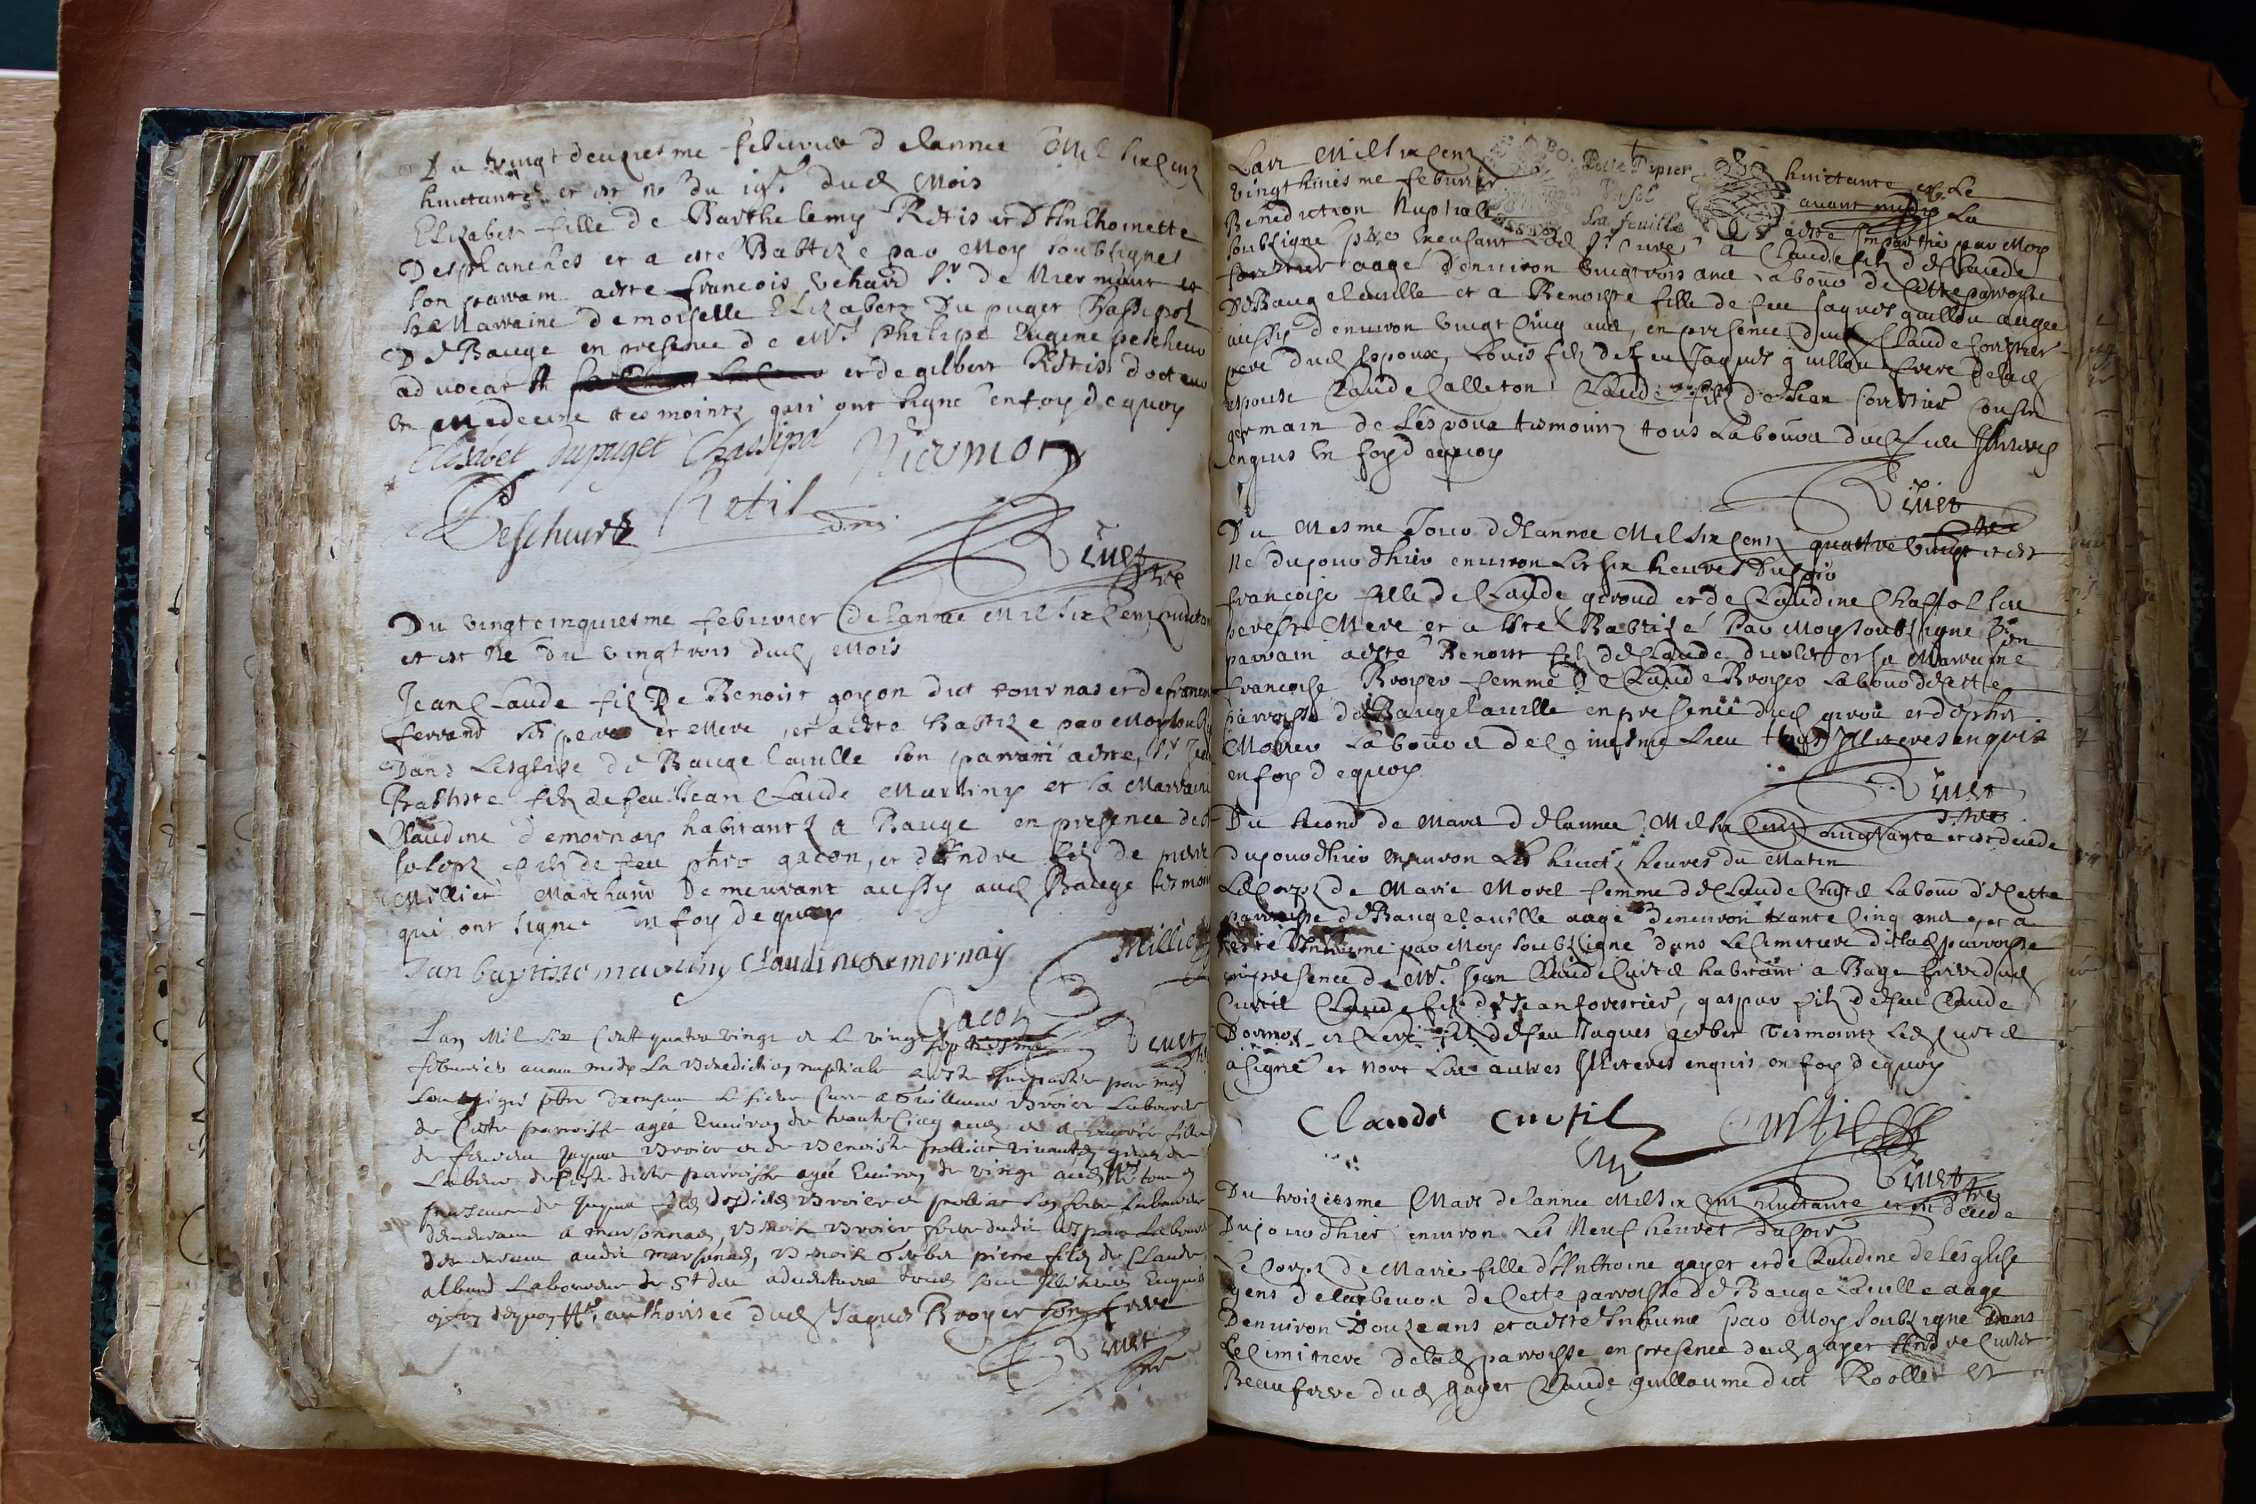 Du vingt deuxiesme febuvrier d elannee Mil six Cent
huictante et est né du 19e dud Mois
Elizabet fille de Barthelemy Retis et D Anthoinette
Desplanches et a esté Baptizé par Moy soubsigné
son parrain aesté francois Vehard Sr de Niermont et
sa Marraine demoiselle Elizabetz Du puget Chassipol
De Bauge en presence de Mr Philipe Eugene pescheur
advocat et de gilbert Retis docteur
en Medecine tesmointz qui ont signé en foy dequoy
Elisabet dupuget Chassipol Niermont
Pescheur Retil dm
Rivet pbre
Du vingtcinquiesme febuvrier de lannee Mil six Cent huictante
et est Né du vingtrois dud Mois
Jean Claude filz De Benoist goyon dict tournas et de francoise
ferrand ses pere et Mere et aesté baptizé par Moy soubz
Dans Lesglise de Bauge laville son parrain aesté, Sr Jean
Baptiste filz de feu Jean Claude Martiny et la Marraine
Claudine demornay habitantz a Bauge en presence de
filz de feu phre gacon, et d Andre filz de pierre
Millier Marchand Demeurant aussy aud Bauge tesmointz
qui ont signé en foy dequoy
Jan baptiste martiny Claudine demornay Millier
Gacon Rivet
Lan Mil six Cent quatre vingt et le vingt septiesme
febuvrier avant midy La Benediction nuptialle a esté impartie par moy
soubsigné pbre vicaire Le sieur Curé a Guillaume Broier Laboureur
de Ceste parroisse agé Environ de trante Cinq ans et a fille
de feu Jaques Broier et de Benoiste pollier vivantz gens de
Labeur de Ceste dicte parroisse agée Environ de vingt ans
presence de Jaques filz desdictz Broier et pollier son frere Laboureur
demeurant a marsonnas, Benoist Broier frere dudit espoux Laboureur
demeurant audit marsonnas, Benoist Gerbet pierre filz de Claude
alband Laboureur de St tous Illiteres Enquis
en foy dequoy authorisée dud Jaques Broyer son frere
Rivet pbre
Lan Mil six Cent huictante et Le
vingthuiesme febuvrier avant midy La
Benediction Nuptialle aesté impartie par Moy
Petit Papier
La feuille
soubsigné pbre Sr Curé A Claude filz de Claude
forestier aagé denviron vingtrois ans Labour de Cette parroisse
De Bauge laville et a Benoiste fille de feu Jaques guillon aagee
aussy denviron vingt Cinq ans, en presence dud Claude forestier
pere dud Espoux, Louis filz defeu Jaques guillon frere delad
espouse Claude Calleton Claude filz de Jean forestier Cousin
germain de Lespoux tesmointz tous Labour dud lieu Illiteres
enquis en foy dequoy
Rivet pbre
Du Mesme Jour de lannee Mil six Cent quattre vingt et est
Né dujourdhier environ Les six heures Du soir
francoise fille de Claude giroud et de Claudine Chassol ses
pere et Mere et a esté Baptisé Par Moy soubsigné son
parrain aesté Benoist filz de Claude et sa Marraine
francoise Broyer femme de Claude Broyer Labour de Cette
parroisse de Bauge laville en presence dud girou et de phre
Morier Labour de Ce mesme Lieu tous Illiteres enquis
en foy dequoy
Rivet pbre
Du second de Mars de lannee Mil six Cent huictante et est decede
dujourdhier environ Les huict heures du Matin
Le Corps de Marie Morel femme de Claude Curtil Labour de Cette
parroisse de Bauge laville aage denviron trante Cinq ans et a
esté Inhumé par Moy soubsigné dans Le Cimetiere de lad parroisse
en presence de Mr Jean Claude Curtil habitant a Bage frere dud
Curtil Claude filz de Jean forestier, gaspar filz de feu Claude
Dormos et filz de feu Jaques gerbet tesmointz Led Curtil
a signé et non Les autres Illiteres enquis en foy dequoy
Claude Curtil Curtil
Rivet pbre
Du troiziesme Mars de lannee Mil six Cent huictante et est decede
Dujourdhier environ Les Neuf heures du soir
Le Corps de Marie fille d Anthoine gayet et de Claudine de lesglise
gens de labeur de Cette parroisse de Bauge Laville aage
Denviron Douze ans et aesté Inhumé par Moy soubsigné Dans
Le Cimitiere delad parroisse en presence dud gayet Andre
Beaufrere dud gayet Claude guillaume dict Rollet et